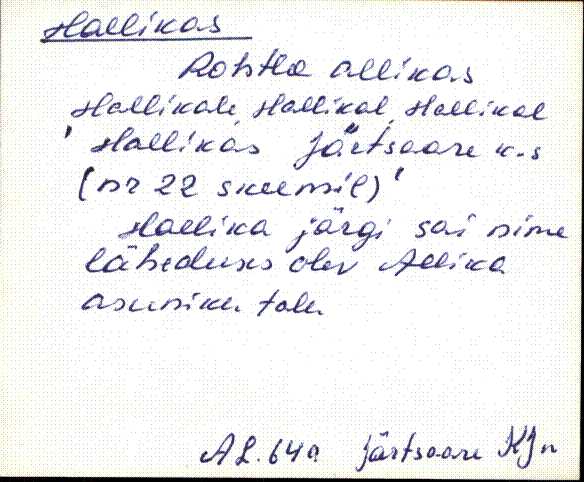 Hallikas
Rohtla allikas
Hallikale, Hallikal, Hallikal
' Hallikas Järtsaare k-s
(nr 22 skeemil)'
Hallika järgi sai nime
läheduses olev Allika
asuniku talu
AL. 64a Järtsaare KJn